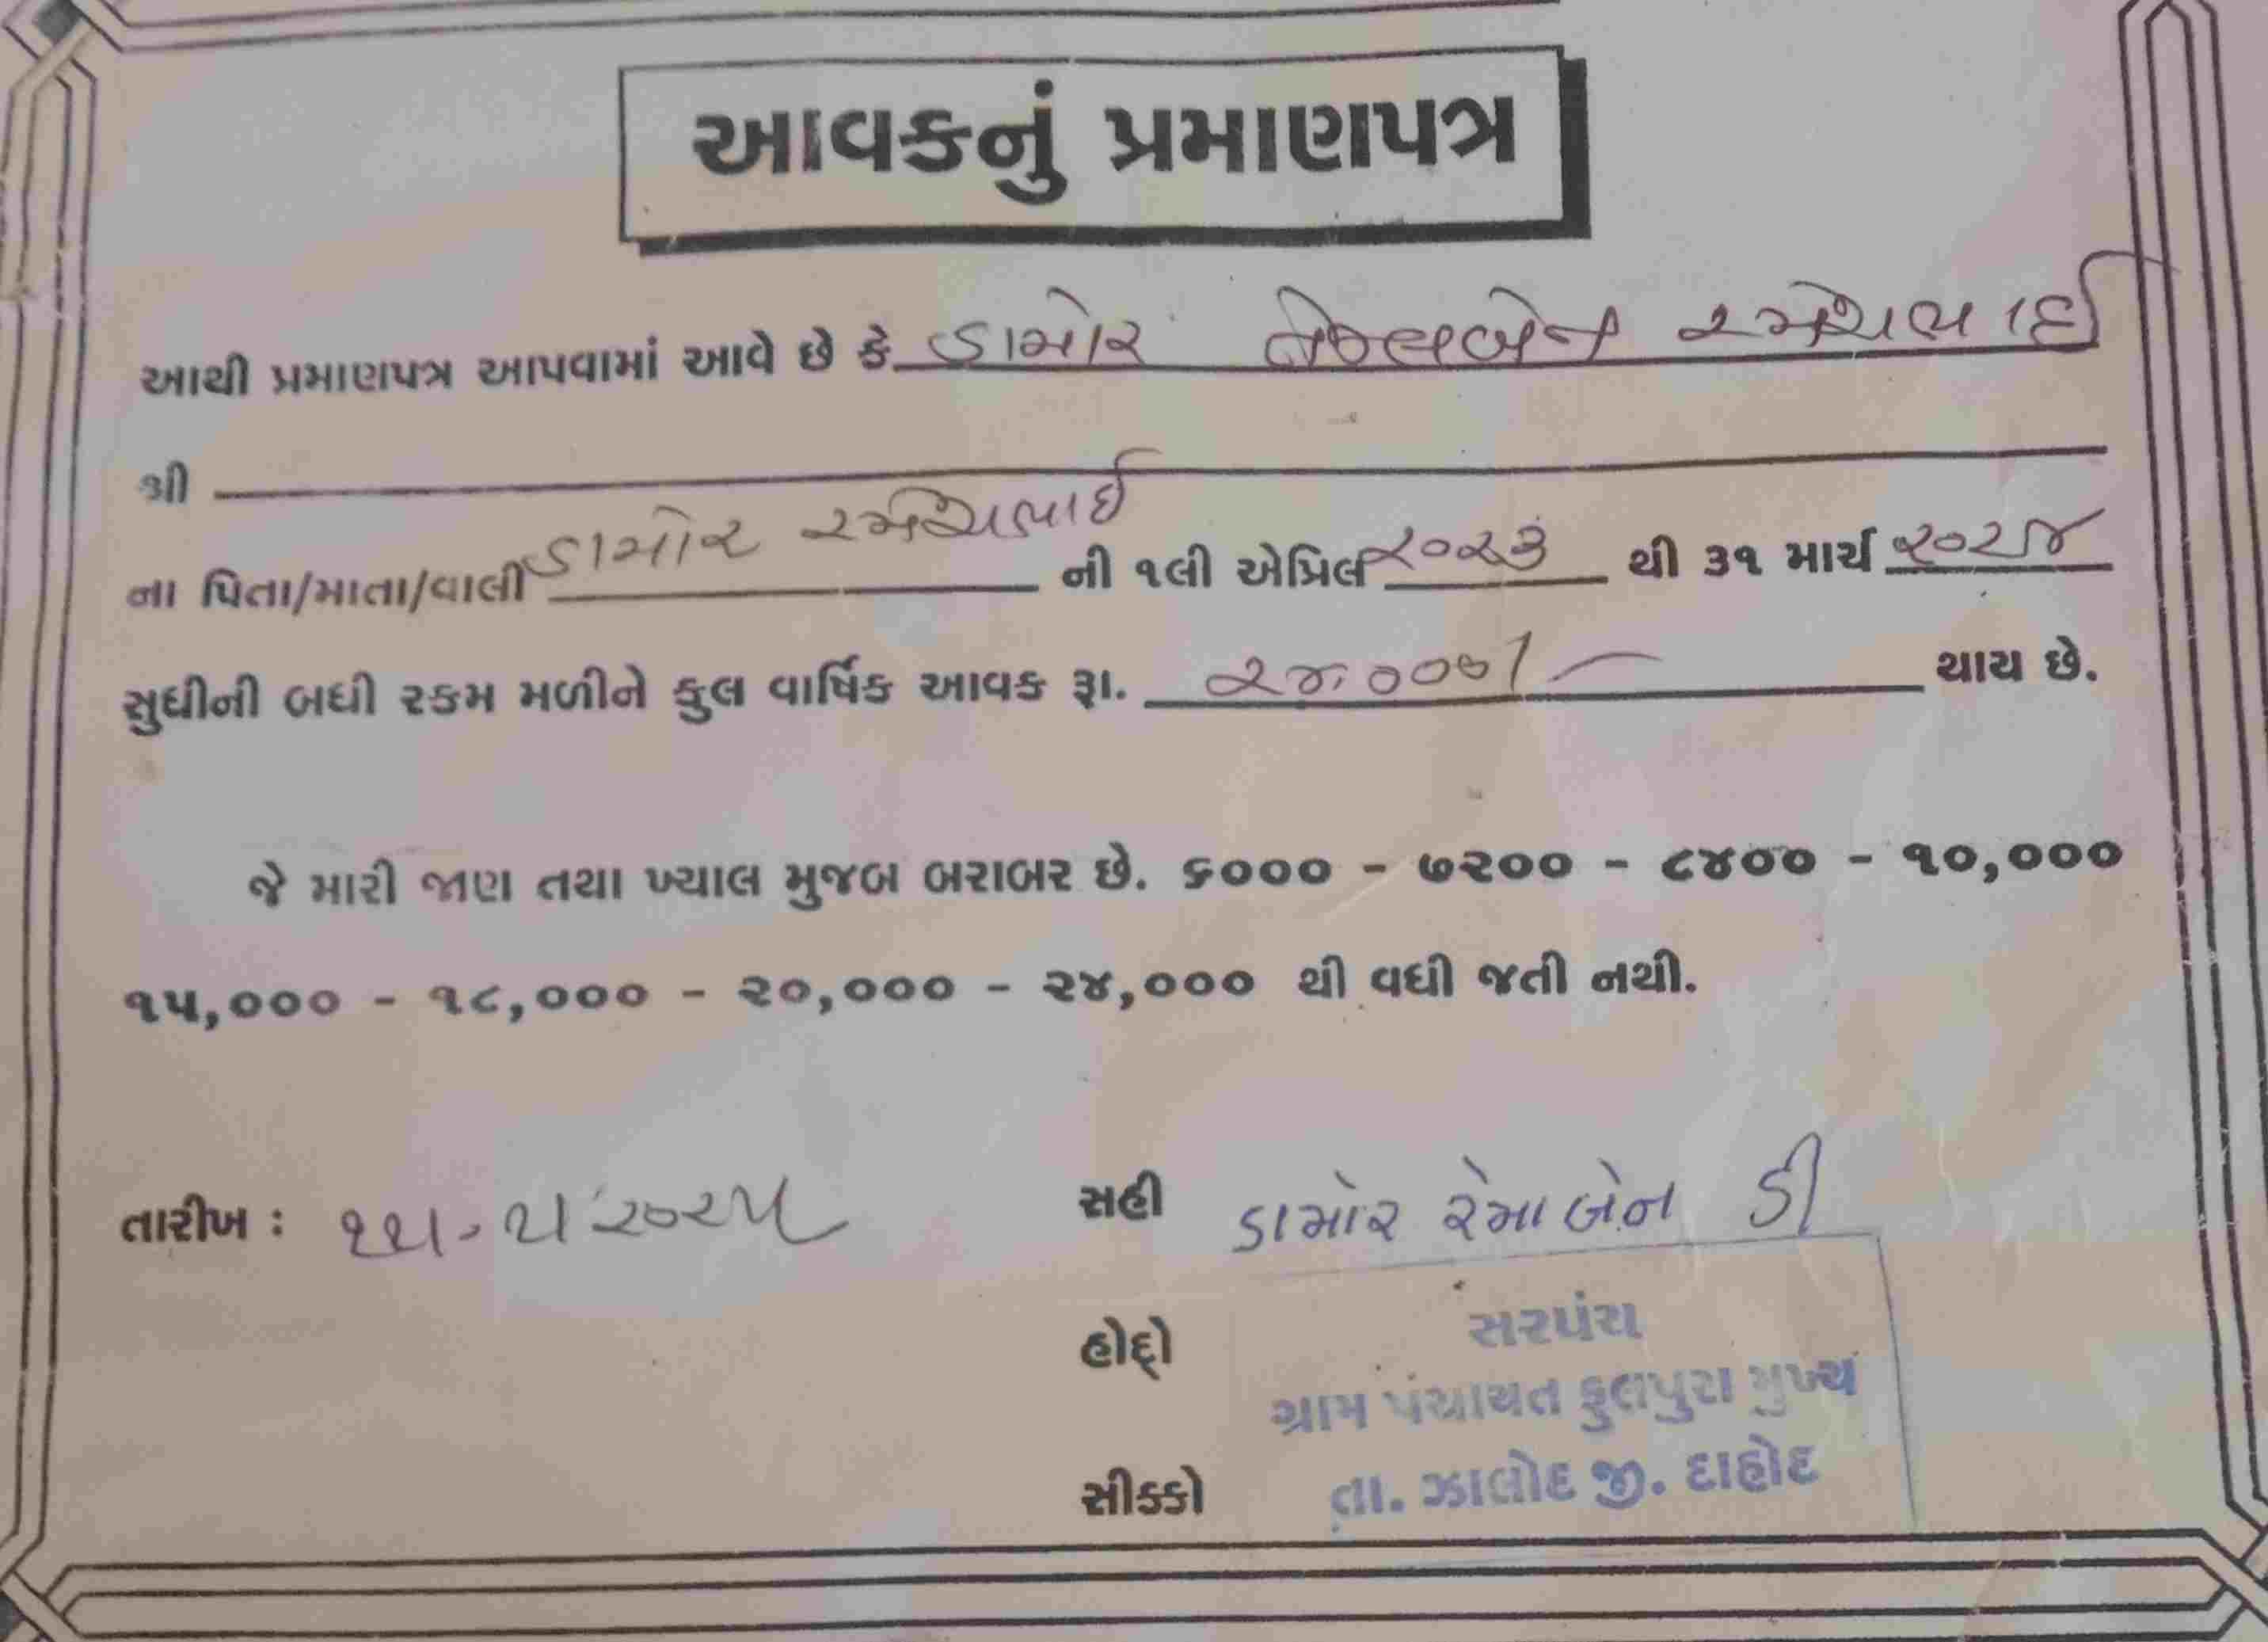 આવકનું પ્રમાણપત્ર
આથી પ્રમાણપત્ર આપવામાં આવે છે કે ડામોર તેજલબેન રમેશભાઈ
શ્રી
ના પિતા/માતા/વાલી ડામોર રમેશભાઈ ની ૧લી એપ્રિલ ૨૦૨૩ થી ૩૧ માર્ચ ૨૦૨૪
સુધીની બધી રકમ મળીને કુલ વાર્ષિક આવક રૂા. ૨૪,૦૦૦/- થાય છે.
જે મારી જાણ તથા ખ્યાલ મુજબ બરાબર છે. ૬૦૦૦ - ૭૨૦૦ - ૮૪૦૦ - ૧૦,૦૦૦
૧૫,૦૦૦ - ૧૮,૦૦૦ - ૨૦,૦૦૦ - ૨૪,૦૦૦ થી વધી જતી નથી.
તારીખ :
સહી ડામોર રેમાબેન ડી
હોદ્દો સરપંચ
ગ્રામ પંચાયત ફુલપુરા મુખ્ય
સીક્કો તા. ઝાલોદ જી. દાહોદ